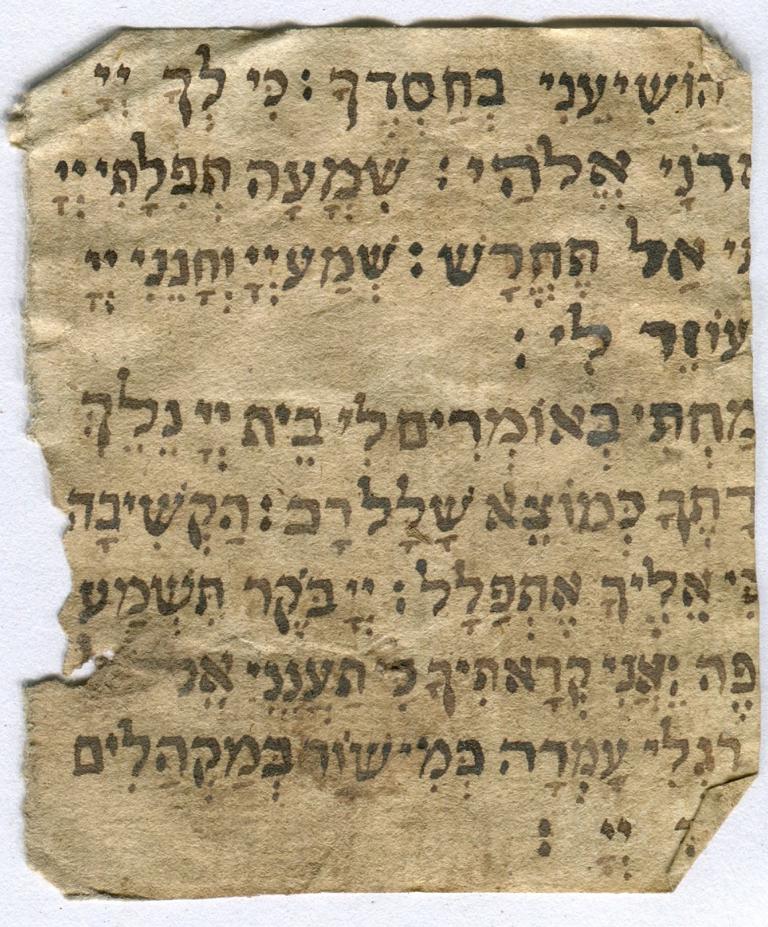 הוֹשִׁיעֵנִי בְחַסְדֶךָ : כִּי לְךָ יְיָ
אֲדֹנָי אֱלֹהַי : שִׁמְעָה תְפִלָתִי יְיָ
אַל תֶחֱרָשׁ : שְׁמַע יְיָ וְחָנֵנִי יְיָ
עוֹזֵר לִי :
מַחְתִי בְאוֹמְרִים לִי בֵית יְיָ נֵלֵךְ
כְמוֹצֵא שָׁלָל רָב : הַקְשִׁיבָה
אֵלֶיךָ אֶתְפַלָל : יְיָ בֹקֶר תִשְׁמַע
וַאֲנִי קְרָאתִיךָ כִי תַעֲנֵנִי אֵל
רַגְלִי עָמְדָה בְמִישׁוֹר בְמַקְהֵלִים
יְיָ :